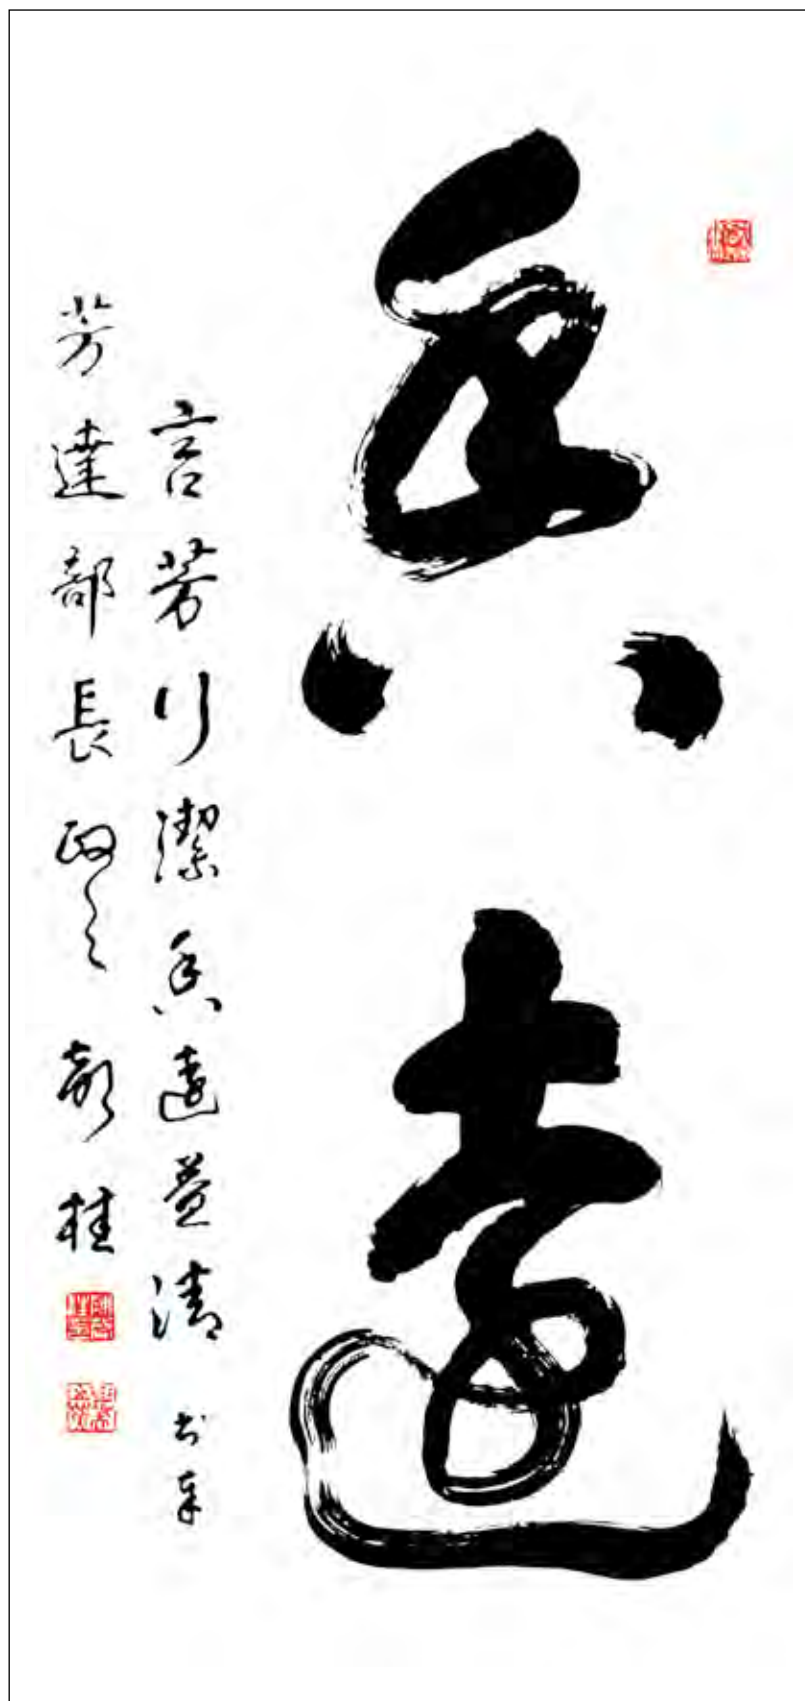 香遠
言芳行潔香遠益清 书奉
芳達部長政之 彭桂